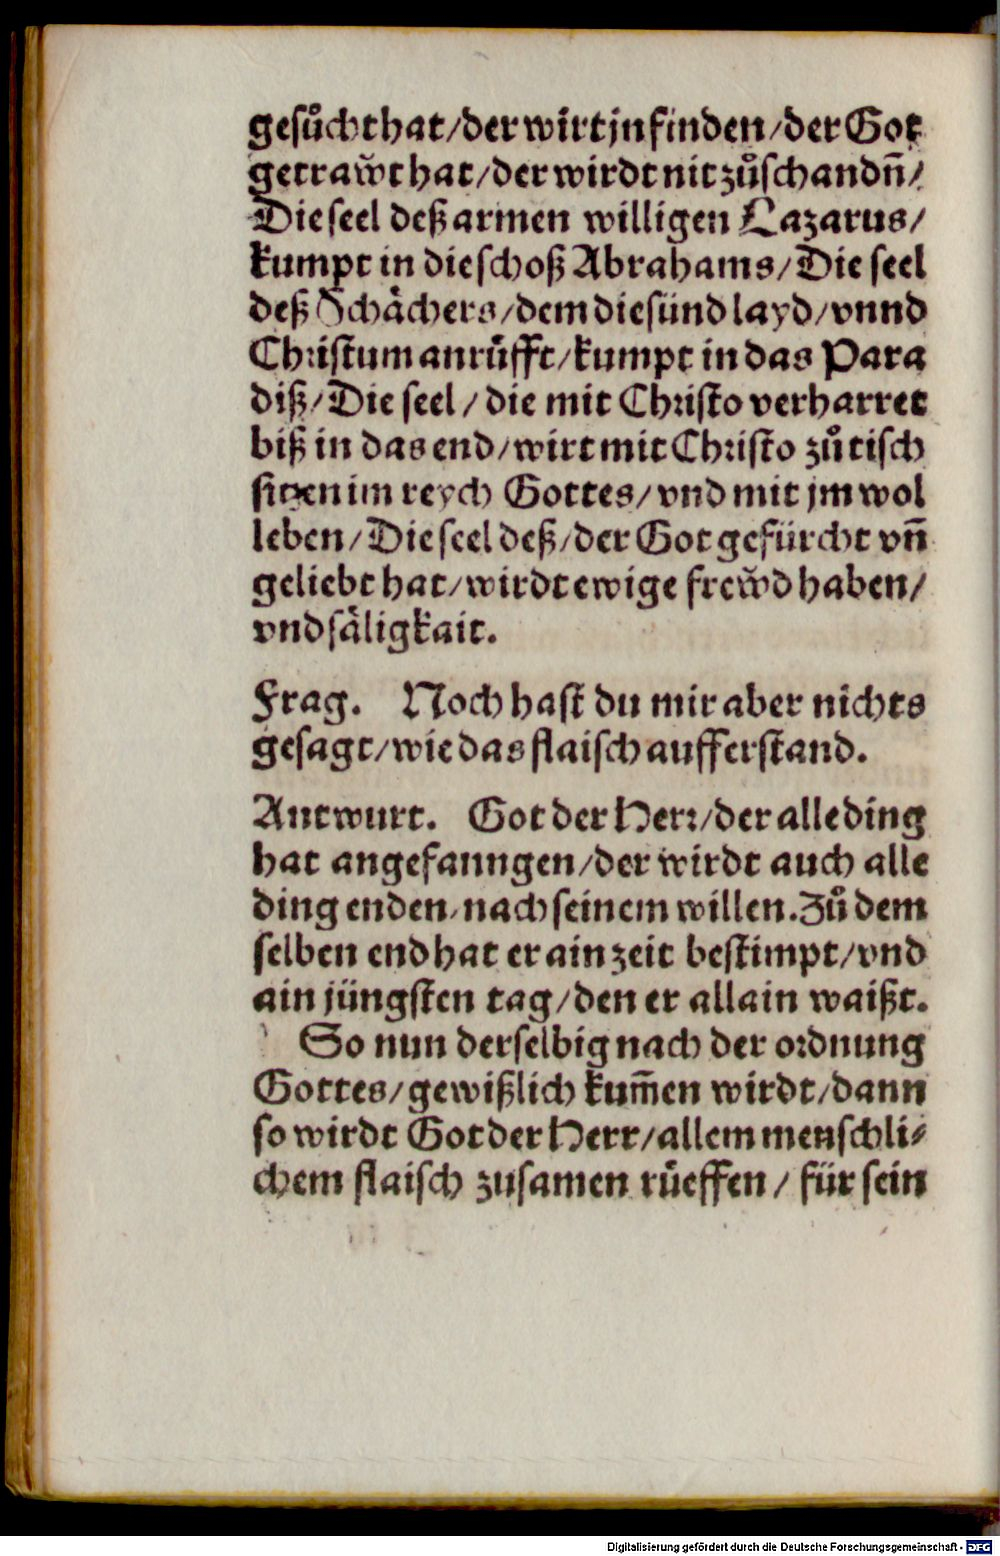 geſuͦcht hat/der wirt jn finden/der Got
getrawͤt hat/der wirdt nit zuͦſchandn̄/
Die ſeel deß armen willigen Lazarus/
kumpt in die ſchoß Abrahams/Die ſeel
deß Schaͤchers/dem die ſünd layd/vnnd
Chriſtum anruͤfft/kumpt in das Para
diß/Die ſeel/die mit Chriſto verharret
biß in das end/wirt mit Chriſto zuͦ tiſch
ſitzen im reych Gottes/vnd mit jm wol
leben/Die ſeel deß/der Got gefürcht vn̄
geliebt hat/wirdt ewige frewͤd haben/
vnd ſaͤligkait.
Frag. Noch haſt du mir aber nichts
geſagt/wie das flaiſch aufferſtand.
Antwurt. Got der Herꝛ/der alle ding
hat angefanngen/der wirdt auch alle
ding enden/nach ſeinem willen. Zuͦ dem
ſelben end hat er ain zeit beſtimpt/vnd
ain jüngſten tag/den er allain waißt.
So nun derſelbig nach der oꝛdnung
Gottes/gewißlich kum̄en wirdt/dann
ſo wirdt Got der Herr/allem menſchli⸗
chem flaiſch zuſamen ruͤeffen/für ſein
Digitalisierung gefördert durch die Deutsche Forschungsgemeinschaft - DFG